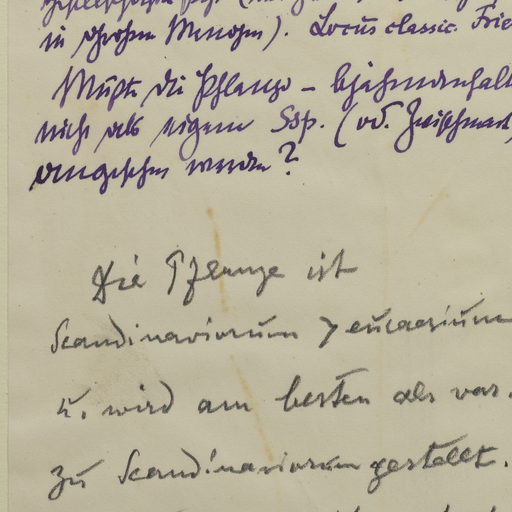 in großen Mengen). Locus classic. Frie
Müßte die Pflanze –
nicht als eigene Ssp. (od. Zwischenart,
angesehen werden?
Die Pflanze ist
Scandinavicum > eucaesium
u. wird am besten als var.
zu Scandinavicum gestellt.